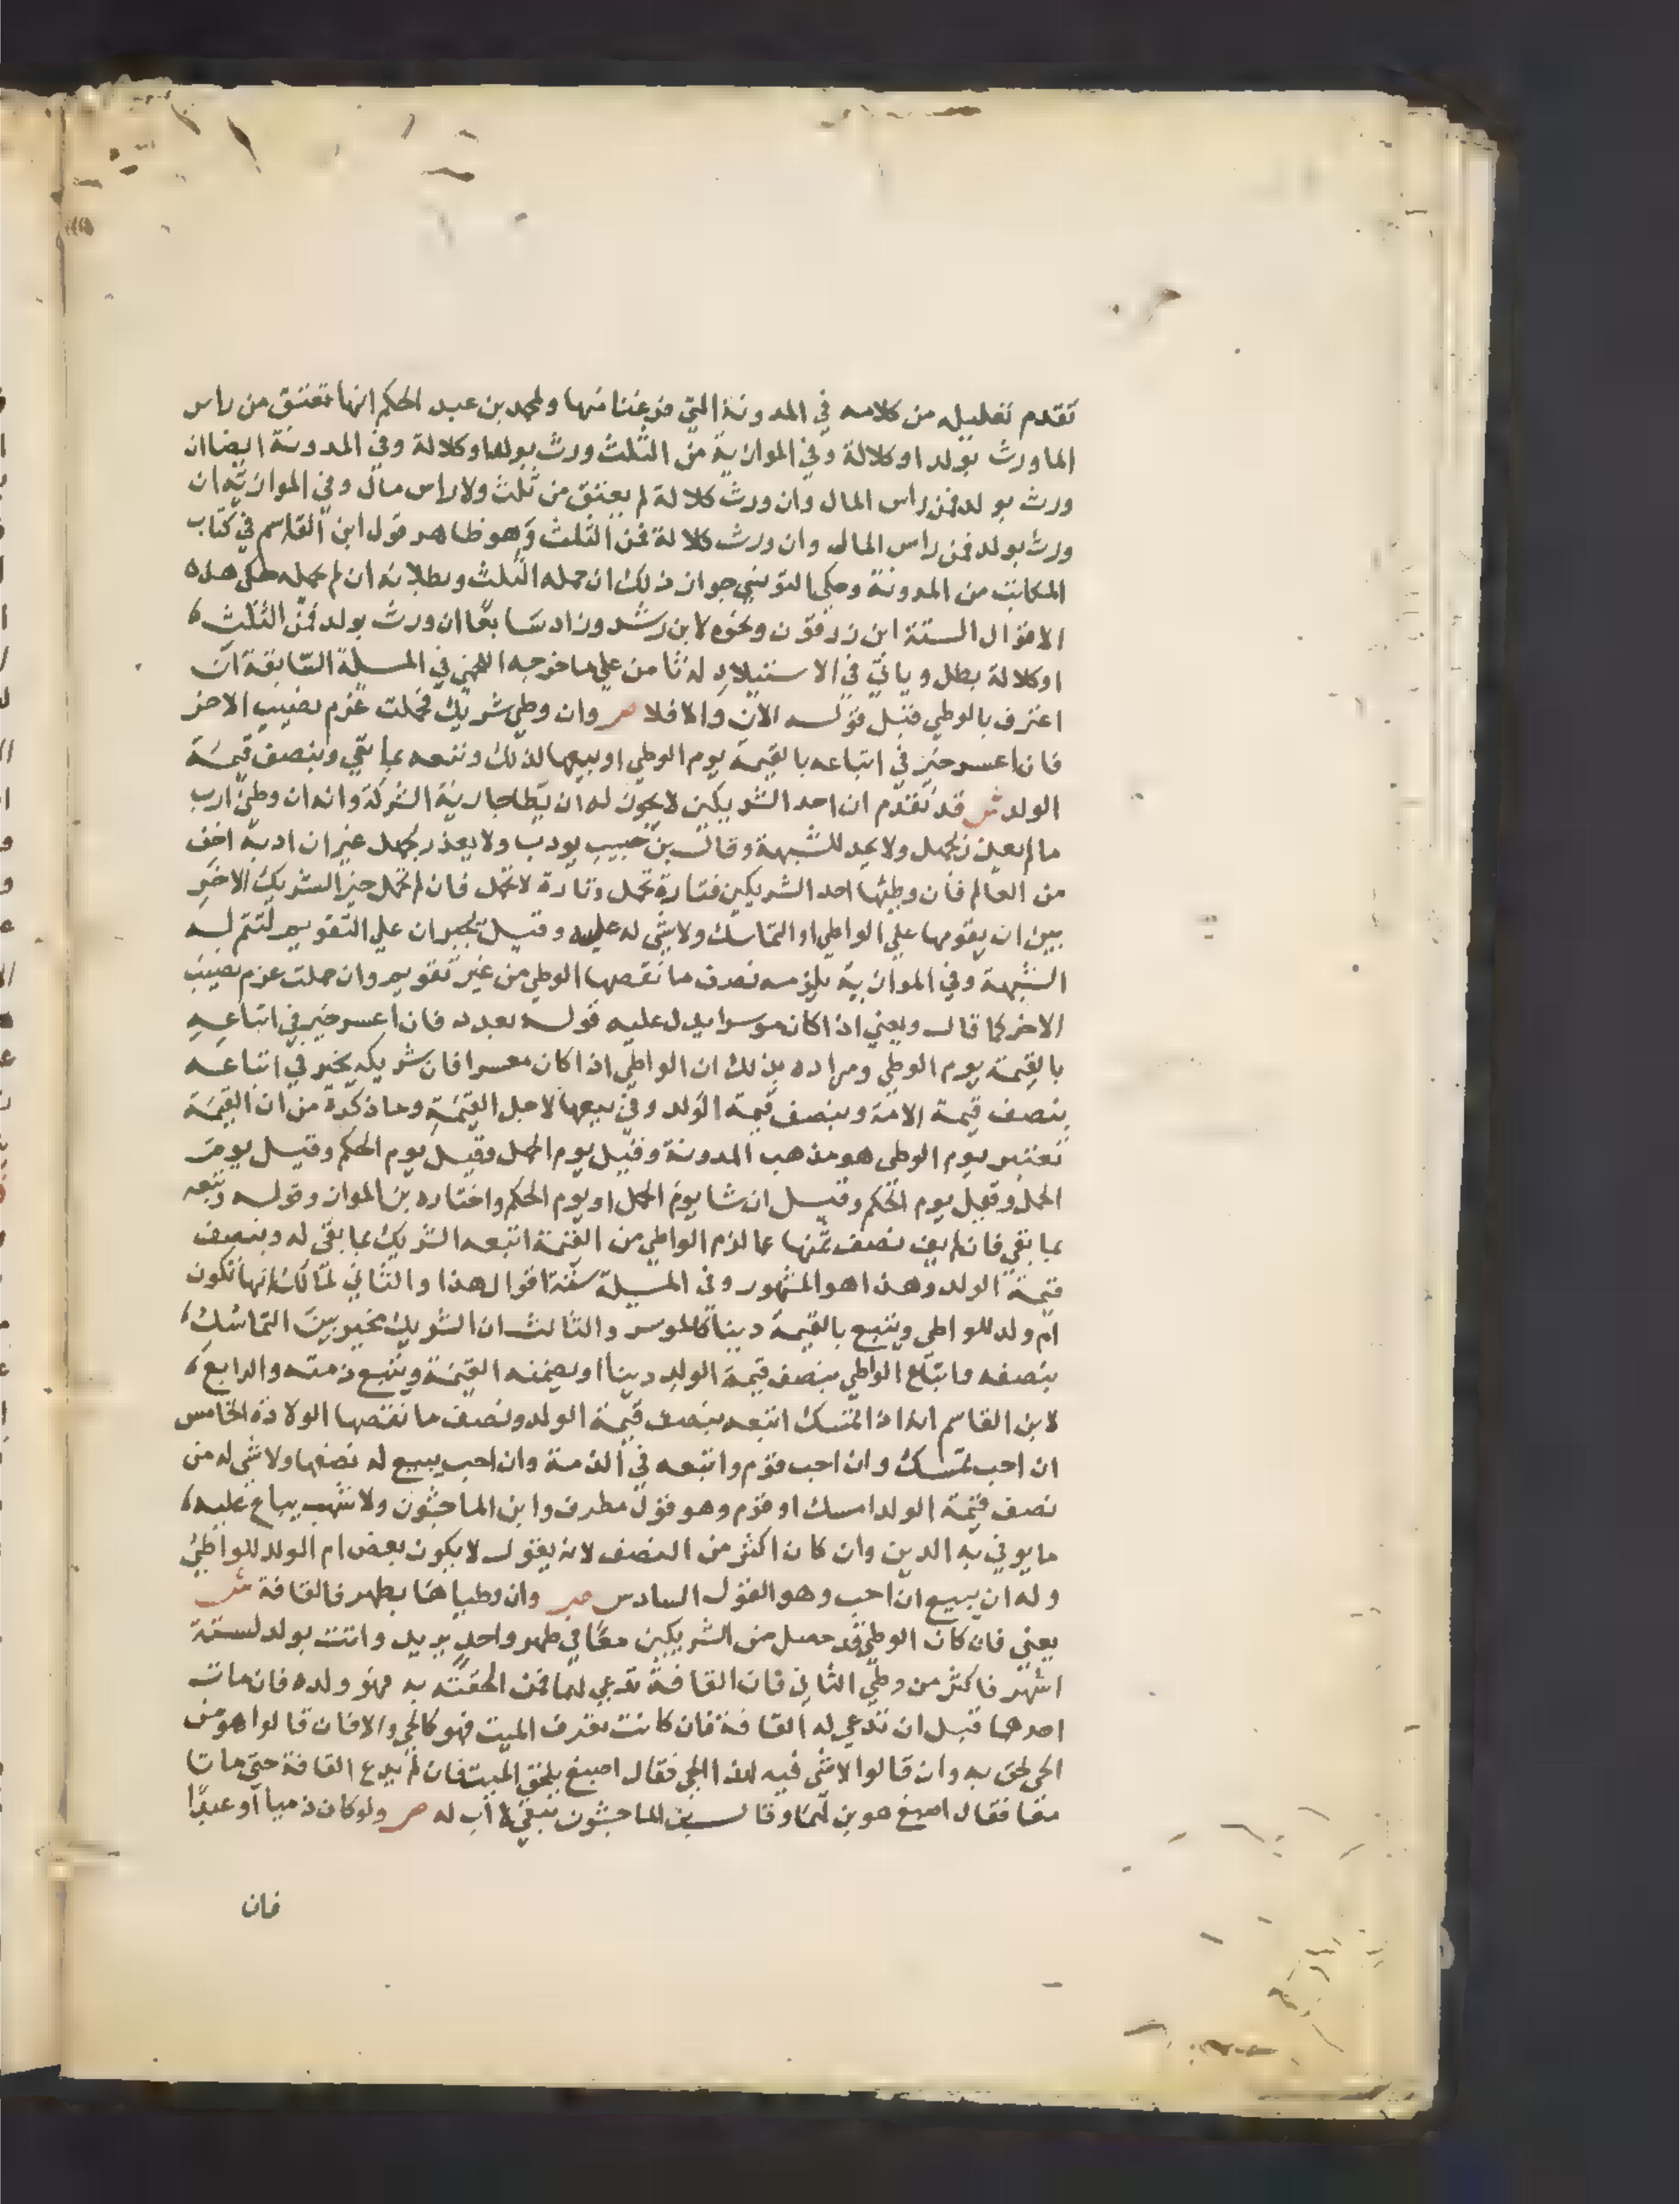 تقدم تعليله من كلامه في المدونة التي فرغنا منها ولمحمد بن عبد الحكم انها تعتق من راس
الما ورث بولد او كلالة وفي الموازية من الثلث ورث بولد او كلالة وفي المدونة ايضا ان
ورث بولد فمن راس المال وان ورث كلالة لم يعتق من ثلث ولا راس مال وفي الموازية ان
ورث بولد فمن راس المال وان ورث كلالة فمن الثلث وهو ظاهر قول ابن القاسم في كتاب
المكاتب من المدونة وحكى التونسي جواز ذلك ان حمله الثلث وبطلانه ان لم يحمله حكى هذه
الاقوال الستة ابن زرقون ونحوه لابن رشد وزاد سابعا ان ورث بولد فمن الثلث
او كلالة بطل وياتي في الاستيلاد له ثامن على ما خرجه اللخمي في المسلة السابقة ان
اعترف بالوطي قبل قوله الان والا فلا ص وان وطي شريك فحملت غرم نصيب الاخر
فان اعسر خير في اتباعه بالقيمة يوم الوطي او بيعها لذلك وتبعه بما بقي وبنصف قيمة
الولد ش قد تقدم ان احد الشريكين لا يجوز له ان يطا جارية الشركة وانه ان وطي ادب
ما لم يعذر بجهل ولا يحد للشبهة وقال بن حبيب يودب ولا يعذر بجهل غير ان ادبه اخف
من العالم فان وطيها احد الشريكين فتارة تحمل وتارة لا تحمل فان لم تحمل خير الشريك الاخر
بين ان يقومها على الواطي او التماسك ولا شي له عليه وقيل يجبران على التقويم لتتم له
الشبهة وفي الموازية يلزمه نصف ما نقصها الوطي من غير تقويم وان حملت غرم نصيب
الاخر كما قال ويعني اذا كان موسرا يدل عليه قوله بعده فان اعسر خير في اتباعه
بالقيمة يوم الوطي ومراده بذلك ان الواطي اذا كان معسرا فان شريكه يخير في اتباعه
بنصف قيمة الامة وبنصف قيمة الولد وفي بيعها لاجل القيمة وما ذكره من ان القيمة
تعتبر يوم الوطي هو مذهب المدونة وقيل يوم الحمل وقيل يوم الحكم وقيل يوم
الحمل وقيل يوم الحكم وقيل ان شا يوم الحمل او يوم الحكم واختاره بن المواز وقوله وتبعه
بما بقي فان لم يف نصف ثمنها بما لزم الواطي من القيمة اتبعه الشريك بما بقي له وبنصف
قيمة الولد وهذا هو المشهور وفي المسيلة ستة اقوال هذا والثاني لمالك انها تكون
ام ولد للواطي ويتبع بالقيمة دينا كالموسر والثالث ان الشريك يخير بين التماسك
بنصفه واتباع الواطي بنصف قيمة الولد دينا او يضمنه القيمة ويتبع ذمته والرابع
لابن القاسم انه اذا تمسك اتبعه بنصف قيمة الولد ونصف ما نقصها الولادة الخامس
ان احب تمسك وان احب قوم واتبعه في الذمة وان احب بيع له نصفها ولا شي له من
نصف قيمة الولد امسك او قوم وهو قول مطرف وابن الماجشون ولاشهب يباع عليه
ما يوفي به الدين وان كان اكثر من النصف لانه يقول لا يكون بعض ام الولد للواطي
وله ان يبيع ان احب وهو القول السادس ص وان وطياها بطهر فالقافة ش
يعني فان كان الوطي قد حصل من الشريكين معا في طهر واحد يريد واتت بولد لستة
اشهر فاكثر من وطي الثاني فان القافة تدعى لهما فمن الحقته به فهو ولده فان مات
احدهما قبل ان تدعى له القافة فان كانت تعرف الميت فهو كالحي والا فان قالوا هو من
الحي لحق به وان قالوا لا شي فيه لهذا الحي فقال اصبغ يلحق الميت فان لم يدع القافة حتى ماتا
معا فقال اصبغ هو بن لهما وقال بن الماجشون يبقى لا اب له ص ولو كان ذميا او عبدا
فان